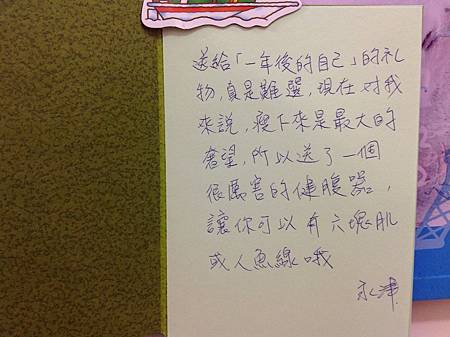 送給「一年後的自己」的礼
物,真是難選,現在對我
來說,瘦下來是最大的
奢望,所以送了一個
很厲害的健腹器,
讓你可以有六塊肌
或人魚線哦
永津